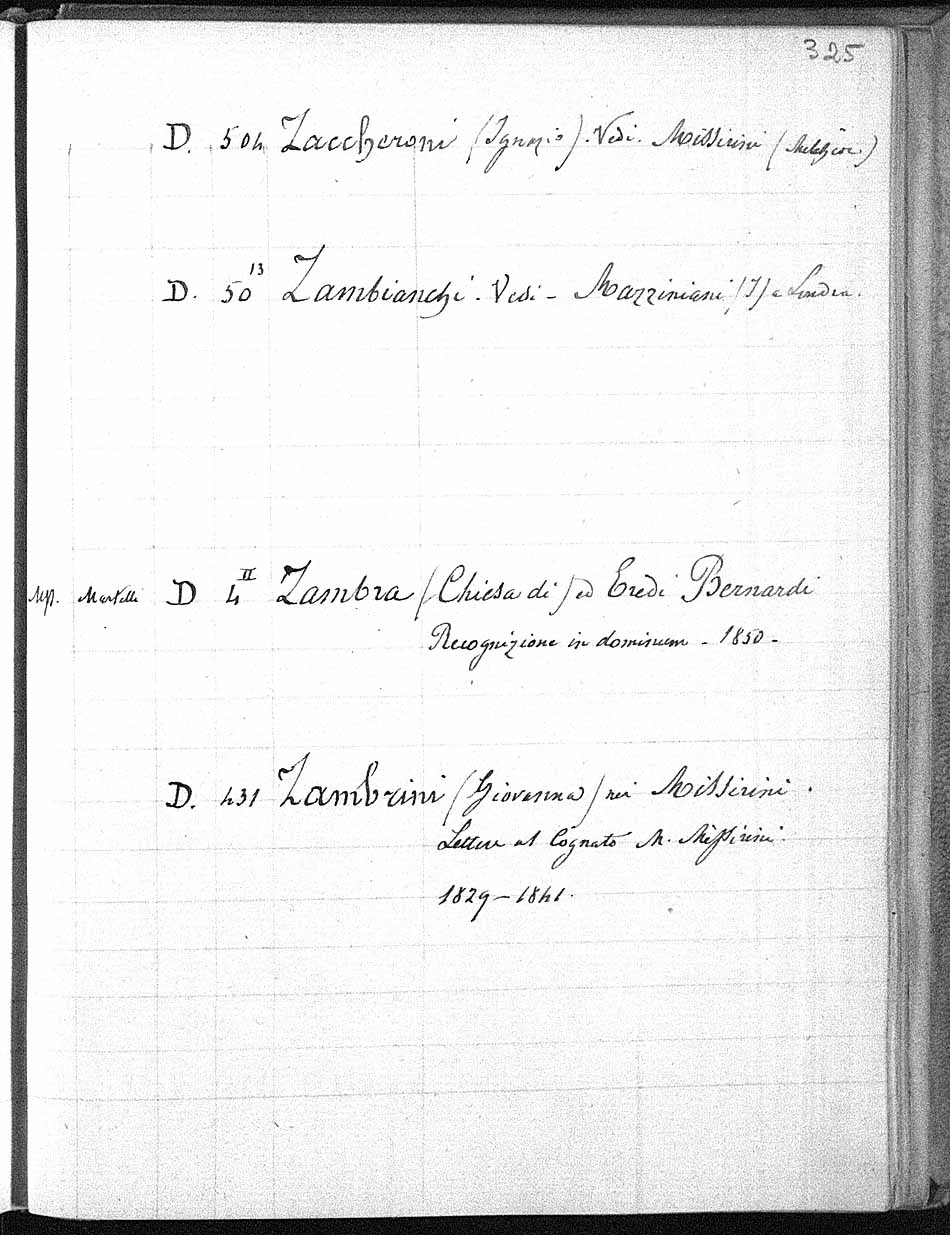 325
D. 504 Zaccheroni (Ignazio). Vedi. Missirini (Melchior.)
D. 50 13 Zambianchi. Vedi - Mazziniani (I) a Londra.
Mss. Martelli D 4 II Zambra (Chiesa di) ed Eredi Bernardi
Recognizione in dominum - 1850 -
D. 431 Zambrini (Giovanna) nei Missirini.
Lettere al Cognato M. Missirini.
1829 - 1841.